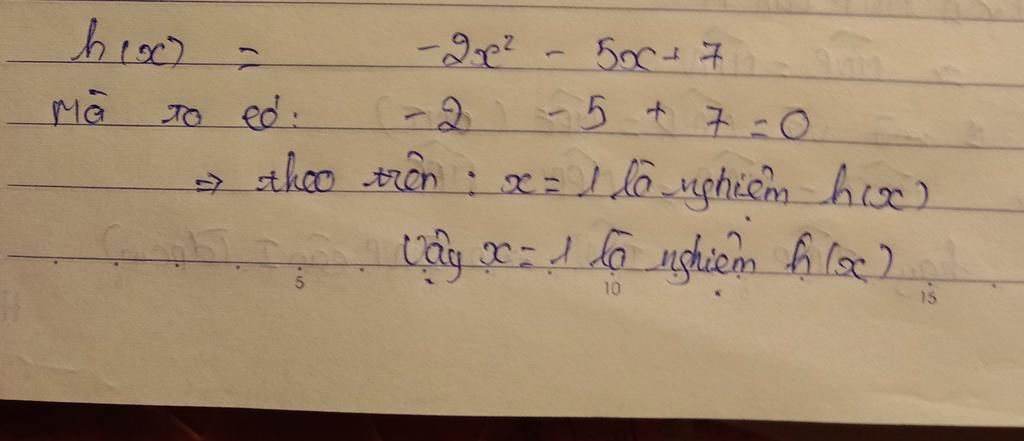 h(x) = -2x² - 5x + 7
Mà ta có: -2 -5 + 7 = 0
⇒ theo trên: x = 1 là nghiệm h(x)
Vậy x = 1 là nghiệm h(x)
5 10 15